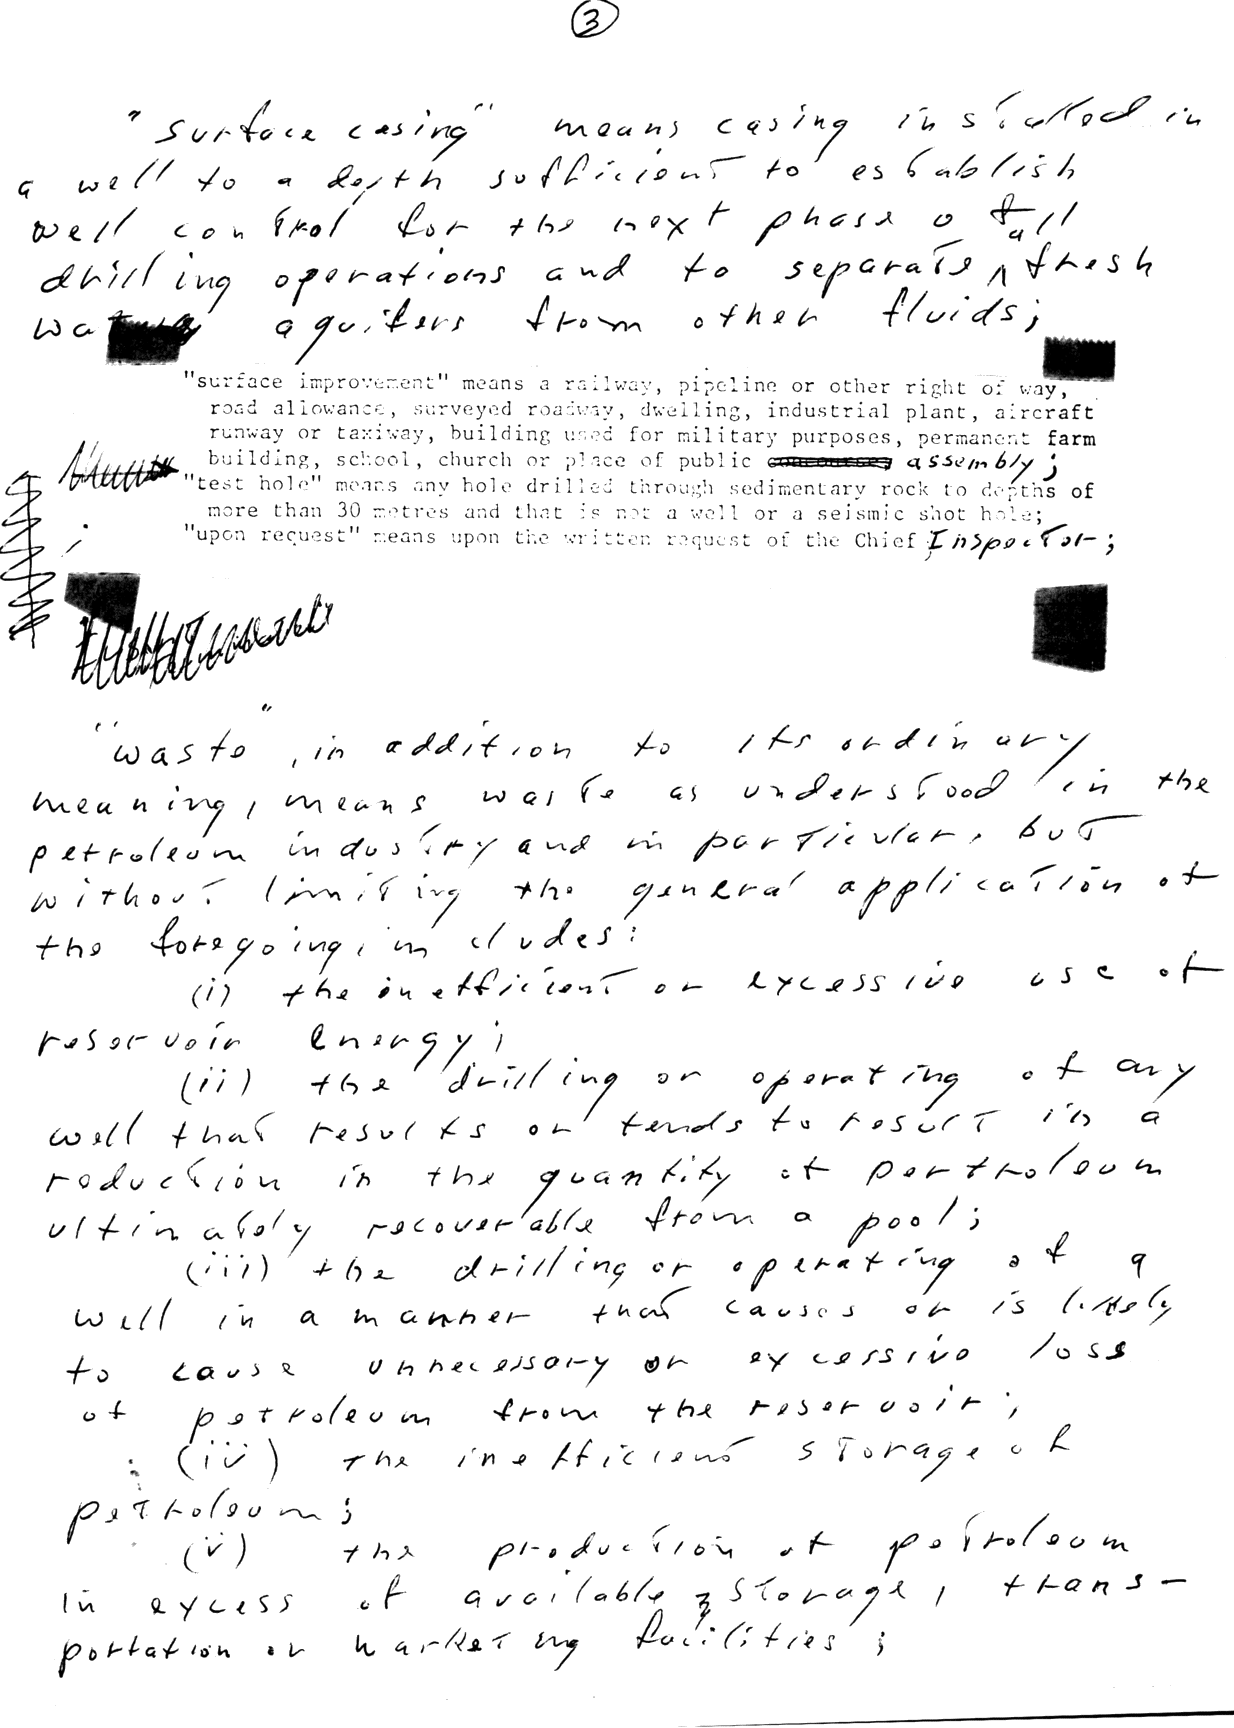 3
"surface casing" means casing installed in
a well to a depth sufficient to establish
well control for the next phase of
drilling operations and to separate all fresh
water aquifers from other fluids;
"surface improvement" means a railway, pipeline or other right of way,
road allowance, surveyed roadway, dwelling, industrial plant, aircraft
runway or taxiway, building used for military purposes, permanent farm
building, school, church or place of public concourse; assembly;
"test hole" means any hole drilled through sedimentary rock to depths of
more than 30 metres and that is not a well or a seismic shot hole;
"upon request" means upon the written request of the Chief Inspector;
"waste", in addition to its ordinary
meaning, means waste as understood in the
petroleum industry and in particular, but
without limiting the general application of
the foregoing, includes:
(i) the inefficient or excessive use of
reservoir energy;
(ii) the drilling or operating of any
well that results or tends to result in a
reduction in the quantity of pertroleum
ultimately recoverable from a pool;
(iii) the drilling or operating of a
well in a manner that causes or is likely
to cause unnecessary or excessive loss
of petroleum from the reservoir;
(iv) the inefficient storage of
petroleum;
(v) the production of petroleum
in excess of available storage, trans-
portation or marketing facilities;